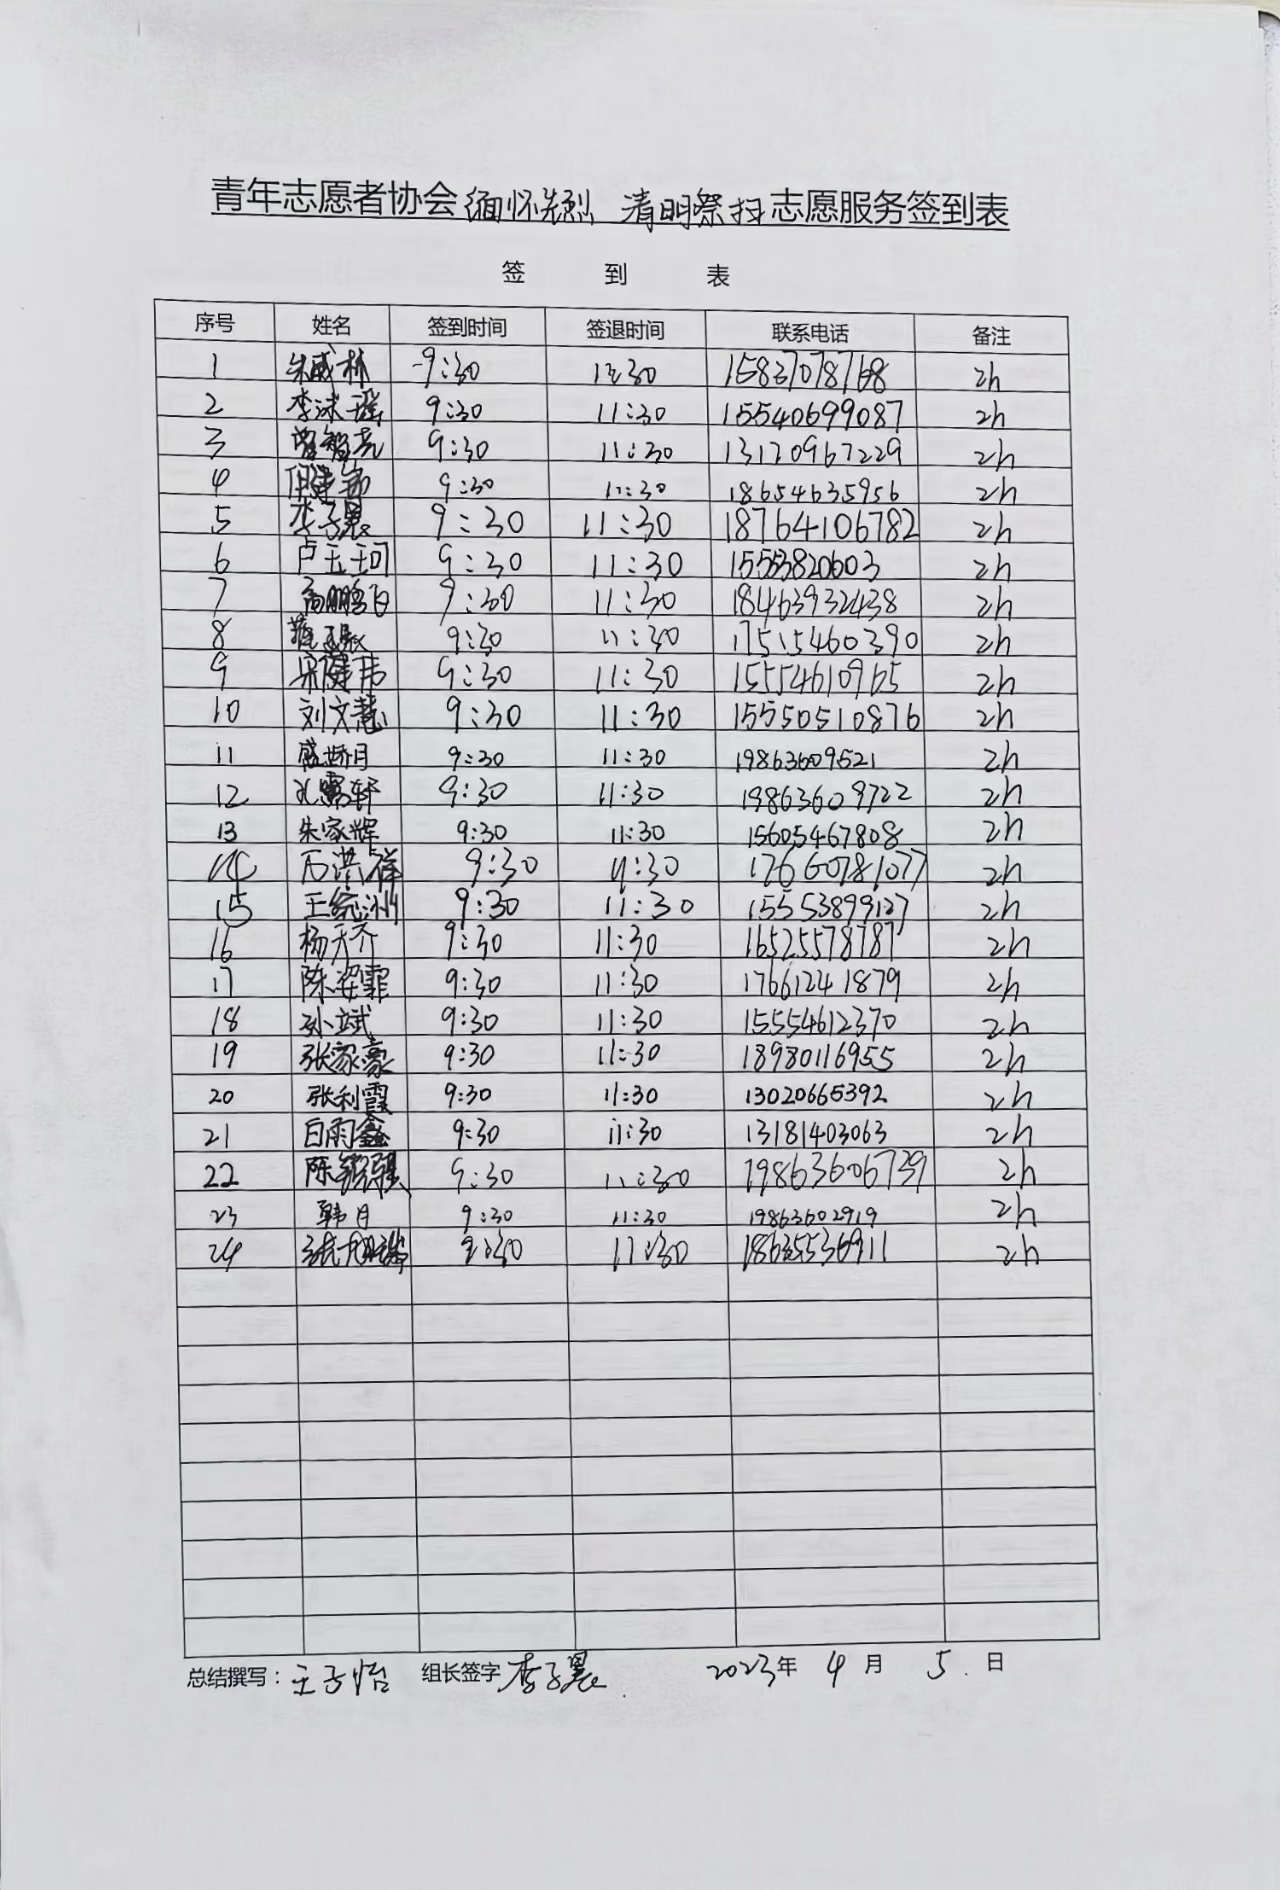 青年志愿者协会缅怀先烈 清明祭扫志愿服务签到表
签 到 表
序号 姓名 签到时间 签退时间 联系电话 备注
1 朱威林 9:30 15837078768 2h
2 李沫瑶 9:30 11:30 15540699087 2h
3 曾智亮 9:30 11:30 13170967229 2h
4 9:30 11:30 18654635956 2h
5 李子晨 9:30 11:30 18764106782 2h
6 卢玉珂 9:30 11:30 15553820603 2h
7 9:30 11:30 18463932438 2h
8 9:30 11:30 17515460390 2h
9 宋健伟 9:30 11:30 15554610965 2h
10 刘文慧 9:30 11:30 15550510876 2h
11 盛娇月 9:30 11:30 19863609521 2h
12 孔露轩 9:30 11:30 19863609722 2h
13 朱家辉 9:30 11:30 15605467808 2h
14 石洪祥 9:30 11:30 17660781077 2h
15 王统洲 9:30 11:30 15553899127 2h
16 杨天齐 9:30 11:30 16525578787 2h
17 陈姿霏 9:30 11:30 17661241879 2h
18 孙斌 9:30 11:30 15554612370 2h
19 张家豪 9:30 11:30 18980116955 2h
20 张利霞 9:30 11:30 13020665392 2h
21 白雨鑫 9:30 11:30 13181403063 2h
22 9:30 11:30 19863606739 2h
23 韩月 9:30 11:30 19863602919 2h
24 9:30 11:30 18635536911 2h
总结撰写：王子怡 组长签字 李子晨 2023年 4月 5日